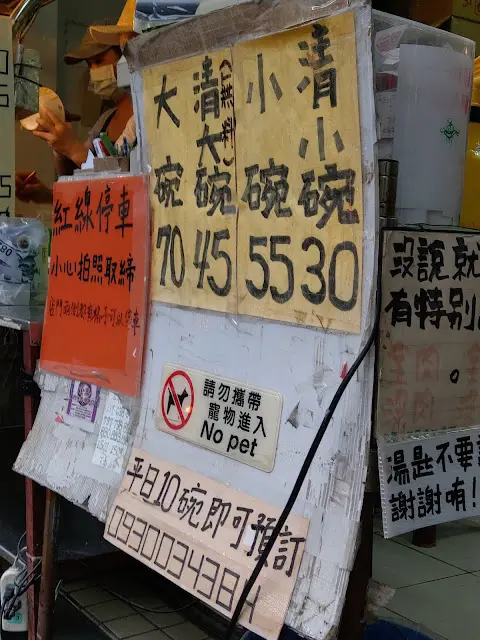 大碗70
清大碗45
(無料)
小碗55
清小碗30
紅線停車
小心拍照取締
請勿攜帶
寵物進入
No pet
平日10碗即可預訂
0930034384
沒說就
有特別
湯匙不要
謝謝唷!